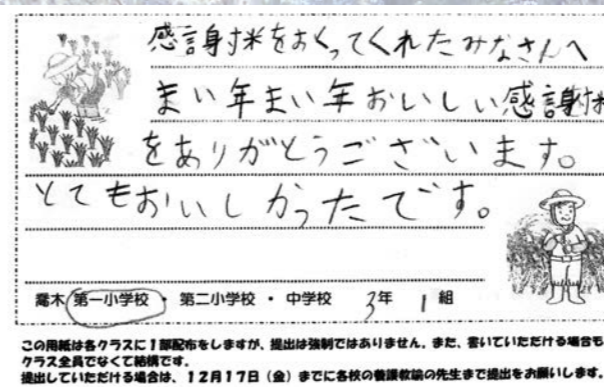 感謝米をおくってくれたみなさんへ
まい年まい年おいしい感謝米
をありがとうございます。
とてもおいしかったです。
喬木 第一小学校 ・ 第二小学校 ・ 中学校 3年 1組
この用紙は各クラスに1部配布をしますが、提出は強制ではありません。また、書いていただける場合も
クラス全員でなくて結構です。
提出していただける場合は、12月17日（金）までに各校の養護教諭の先生まで提出をお願いします。